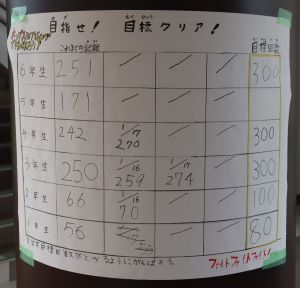 目指せ! 目標クリア!
これまでの記録 目標回数
6年生 251 / / / 300
5年生 171 / / /
4年生 242 1/17 270 / / 300
3年生 250 1/16 259 1/17 274 / 300
2年生 66 1/16 70 / / 100
1年生 56 / / 80
ファイトファイトファイト!